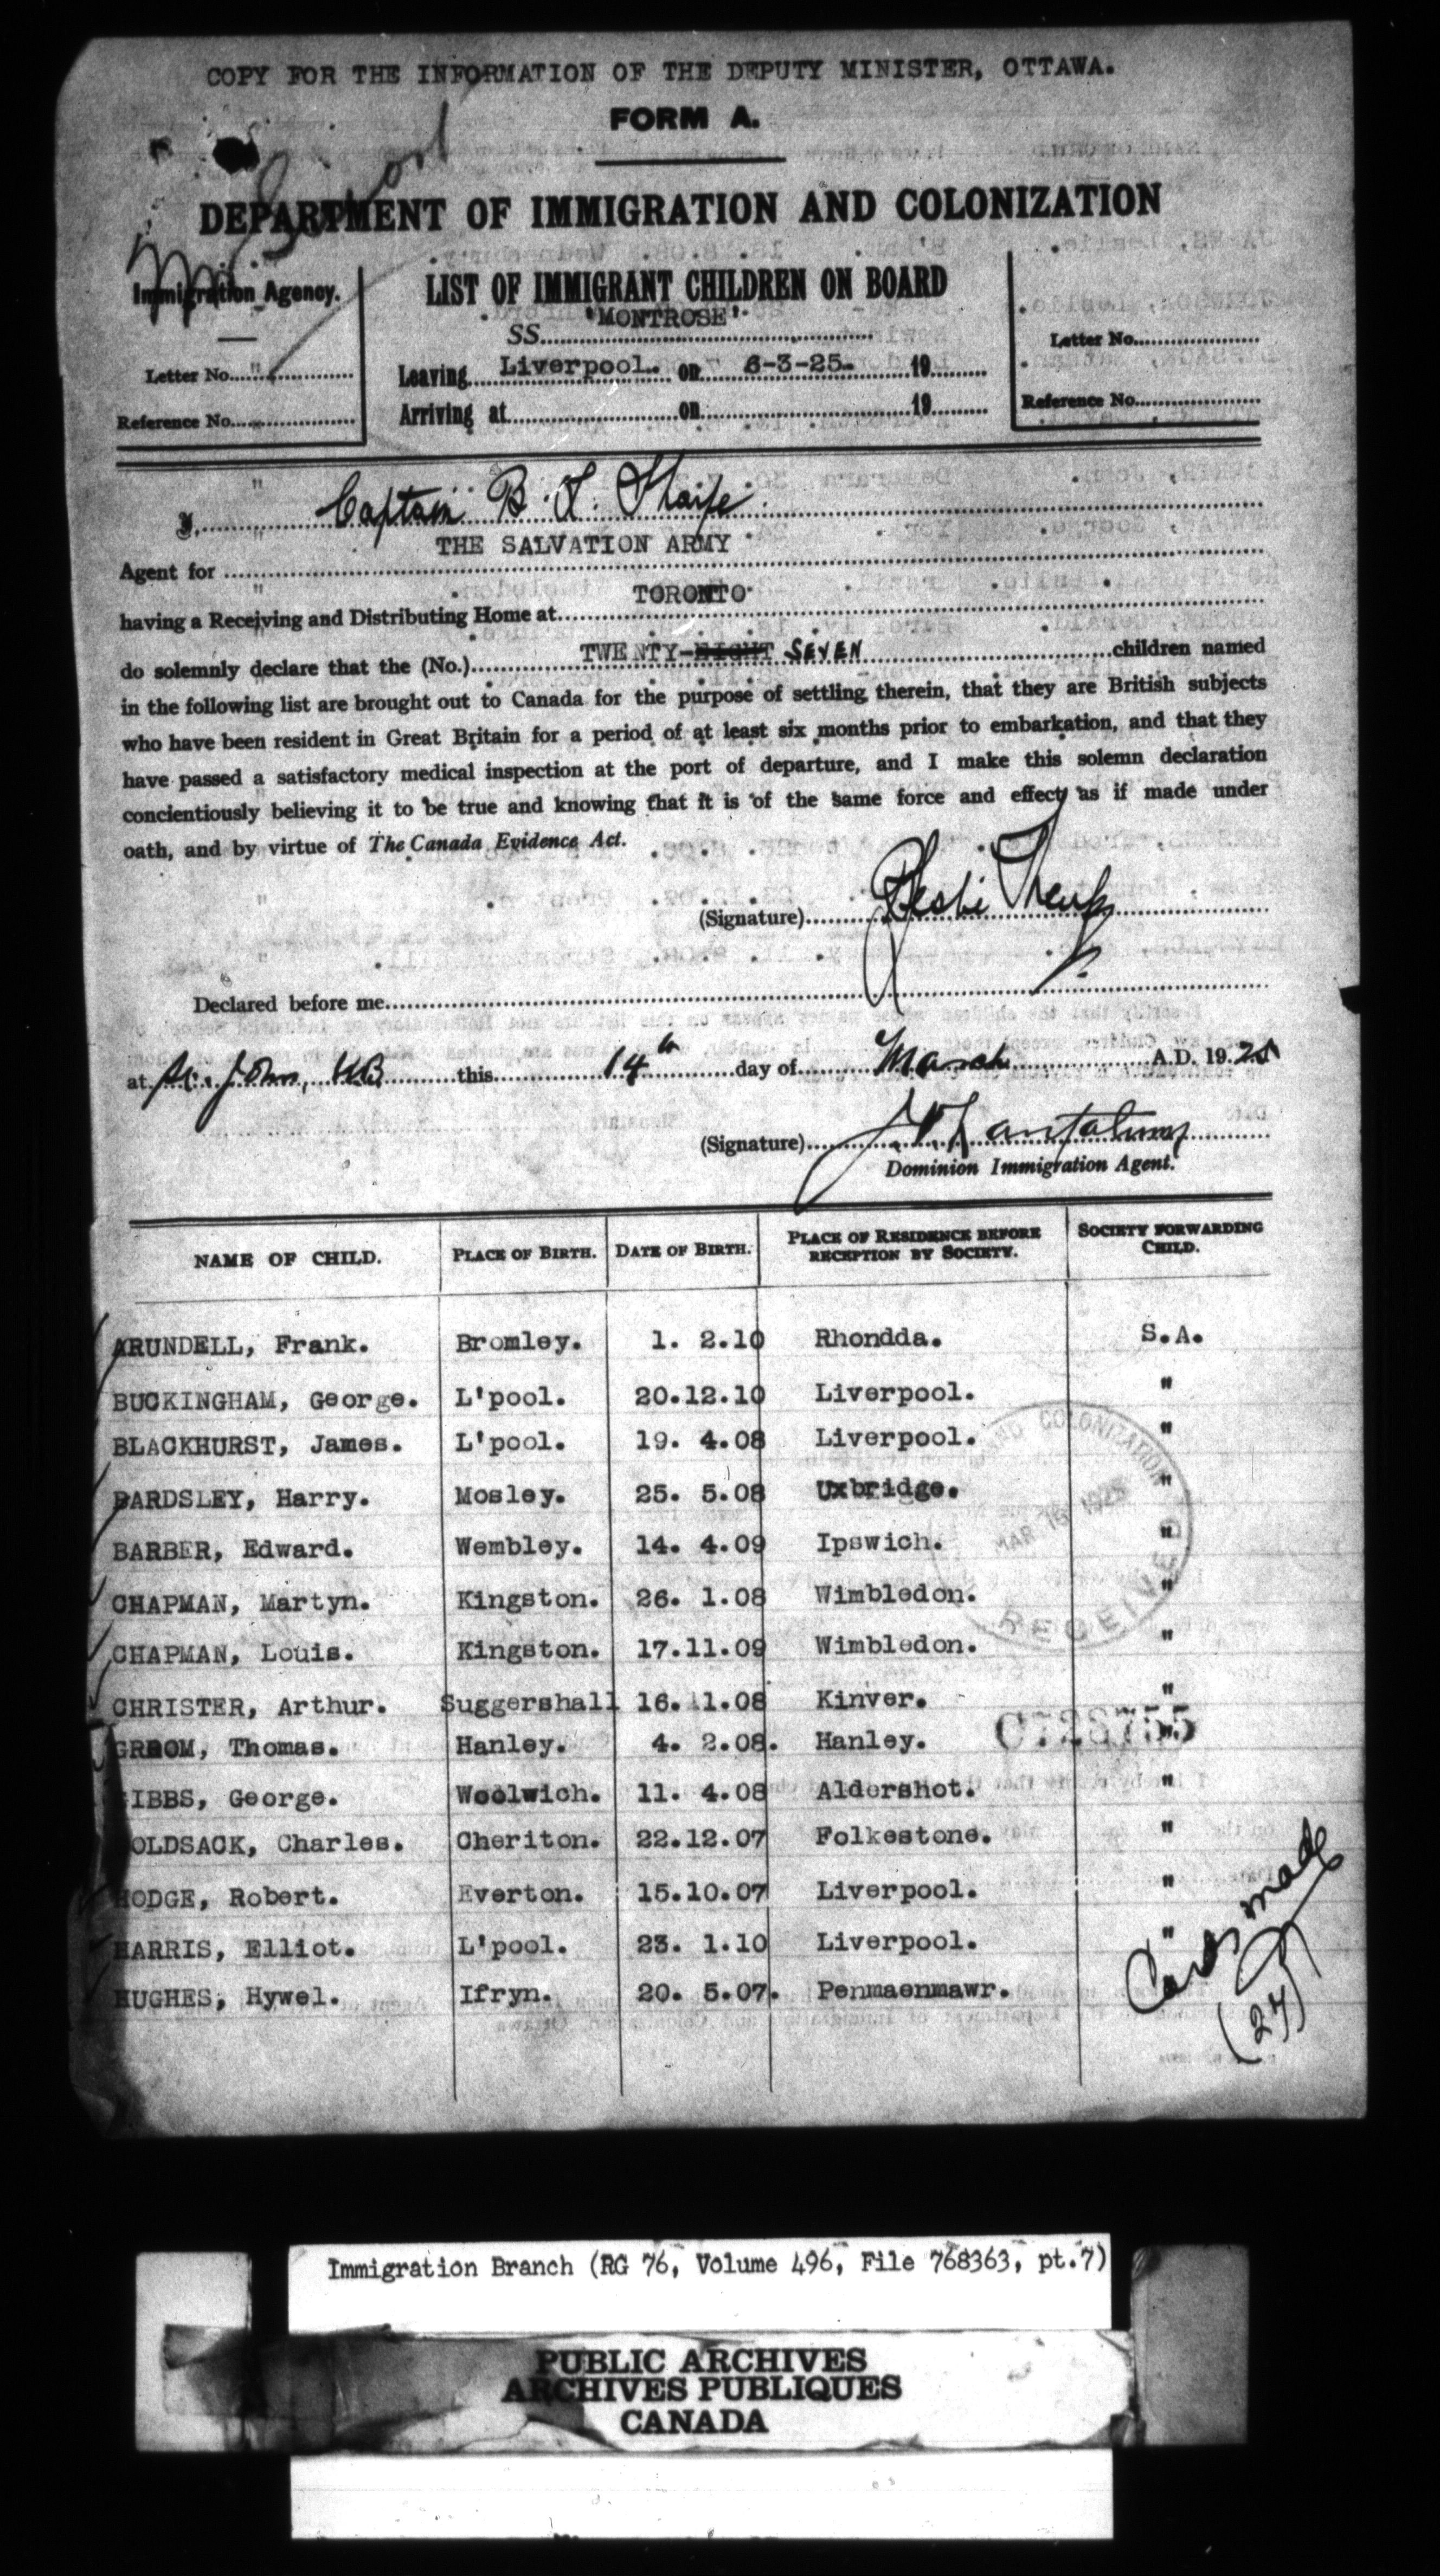 COPY FOR THE INFORMATION OF THE DEPUTY MINISTER, OTTAWA.
FORM A.
DEPARTMENT OF IMMIGRATION AND COLONIZATION
Immigration Agency.
Letter No.
Reference No.
LIST OF IMMIGRANT CHILDREN ON BOARD
SS. "MONTROSE"
Leaving Liverpool. on 6-3-25. 19
Arriving at on 19
Letter No.
Reference No.
I, Captain B. L. Sharpe
Agent for THE SALVATION ARMY
having a Receiving and Distributing Home at TORONTO
do solemnly declare that the (No.) TWENTY-EIGHT SEVEN children named
in the following list are brought out to Canada for the purpose of settling therein, that they are British subjects
who have been resident in Great Britain for a period of at least six months prior to embarkation, and that they
have passed a satisfactory medical inspection at the port of departure, and I make this solemn declaration
concientiously believing it to be true and knowing that it is of the same force and effect as if made under
oath, and by virtue of The Canada Evidence Act.
(Signature)
Declared before me
at St. John, NB this 14th day of March A.D. 1925
(Signature)
Dominion Immigration Agent.
NAME OF CHILD. PLACE OF BIRTH. DATE OF BIRTH. PLACE OF RESIDENCE BEFORE RECEPTION BY SOCIETY. SOCIETY FORWARDING CHILD.
ARUNDELL, Frank. Bromley. 1. 2.10 Rhondda. S.A.
BUCKINGHAM, George. L'pool. 20.12.10 Liverpool. "
BLACKHURST, James. L'pool. 19. 4.08 Liverpool. "
BARDSLEY, Harry. Mosley. 25. 5.08 Uxbridge. "
BARBER, Edward. Wembley. 14. 4.09 Ipswich. "
CHAPMAN, Martyn. Kingston. 26. 1.08 Wimbledon. "
CHAPMAN, Louis. Kingston. 17.11.09 Wimbledon. "
CHRISTER, Arthur. Suggershall 16.11.08 Kinver. "
GROOM, Thomas. Hanley. 4. 2.08. Hanley. "
GIBBS, George. Woolwich. 11. 4.08 Aldershot. "
GOLDSACK, Charles. Cheriton. 22.12.07 Folkestone. "
HODGE, Robert. Everton. 15.10.07 Liverpool. "
HARRIS, Elliot. L'pool. 23. 1.10 Liverpool. "
HUGHES, Hywel. Ifryn. 20. 5.07. Penmaenmawr. "
AND COLONIZATION
MAR 16 1925
RECEIVED
C723755
Cards made
(27)
Immigration Branch (RG 76, Volume 496, File 768363, pt.7)
PUBLIC ARCHIVES
ARCHIVES PUBLIQUES
CANADA